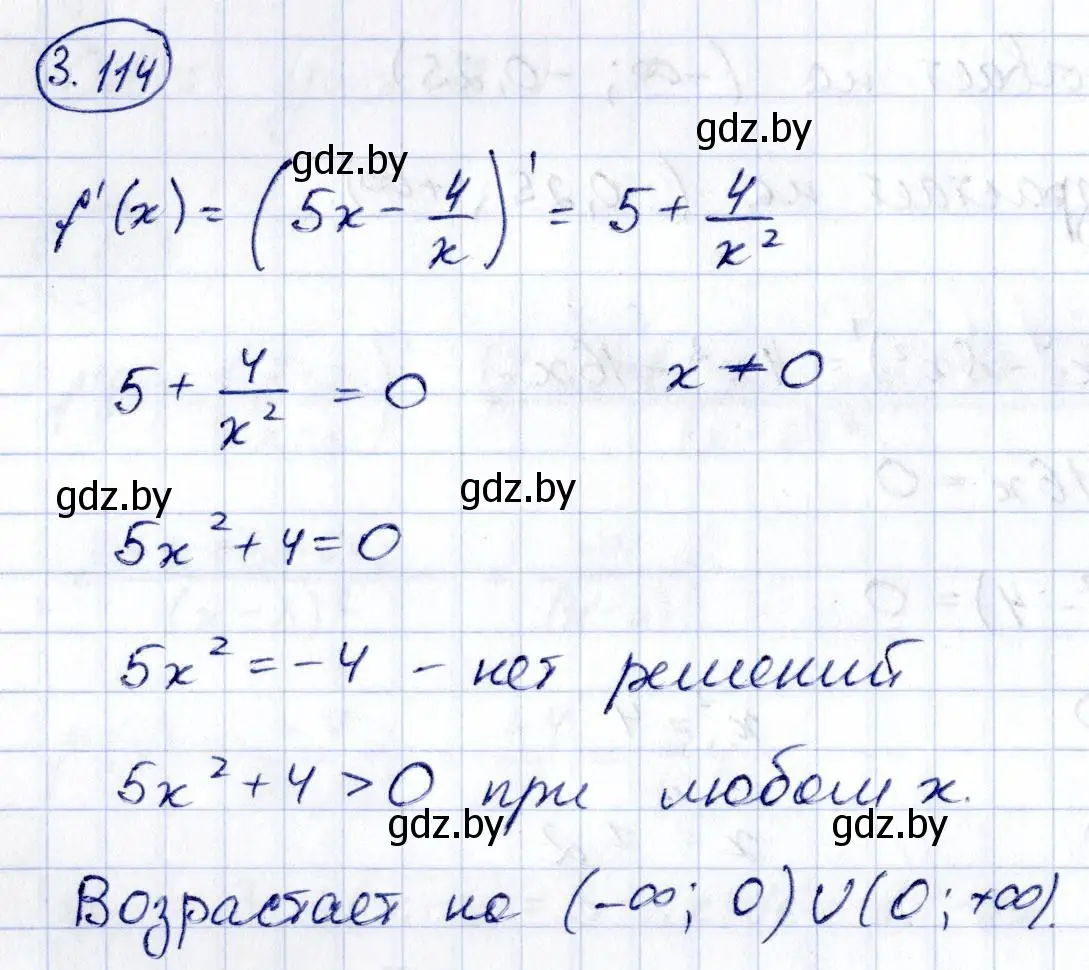 3.114
gdz.by
gdz.by
f'(x) = (5x - 4/x)' = 5 + 4/x²
5 + 4/x² = 0 x ≠ 0
gdz.by
gdz.by
5x² + 4 = 0
5x² = -4 - нет решений
5x² + 4 > 0 при любом x.
gdz.by
gdz.by
Возрастает на (-∞; 0) ∪ (0; +∞).